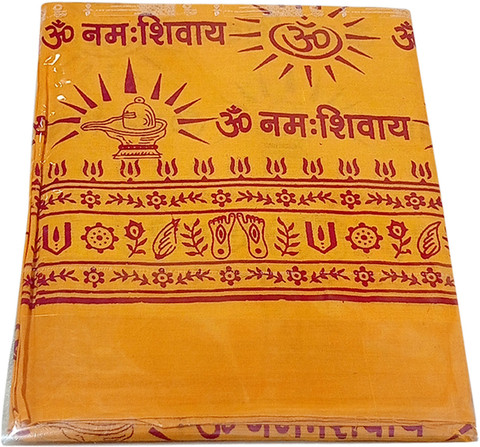 ॐ नमःशिवाय ॐ ॐ
ॐ नमःशिवाय
ॐ